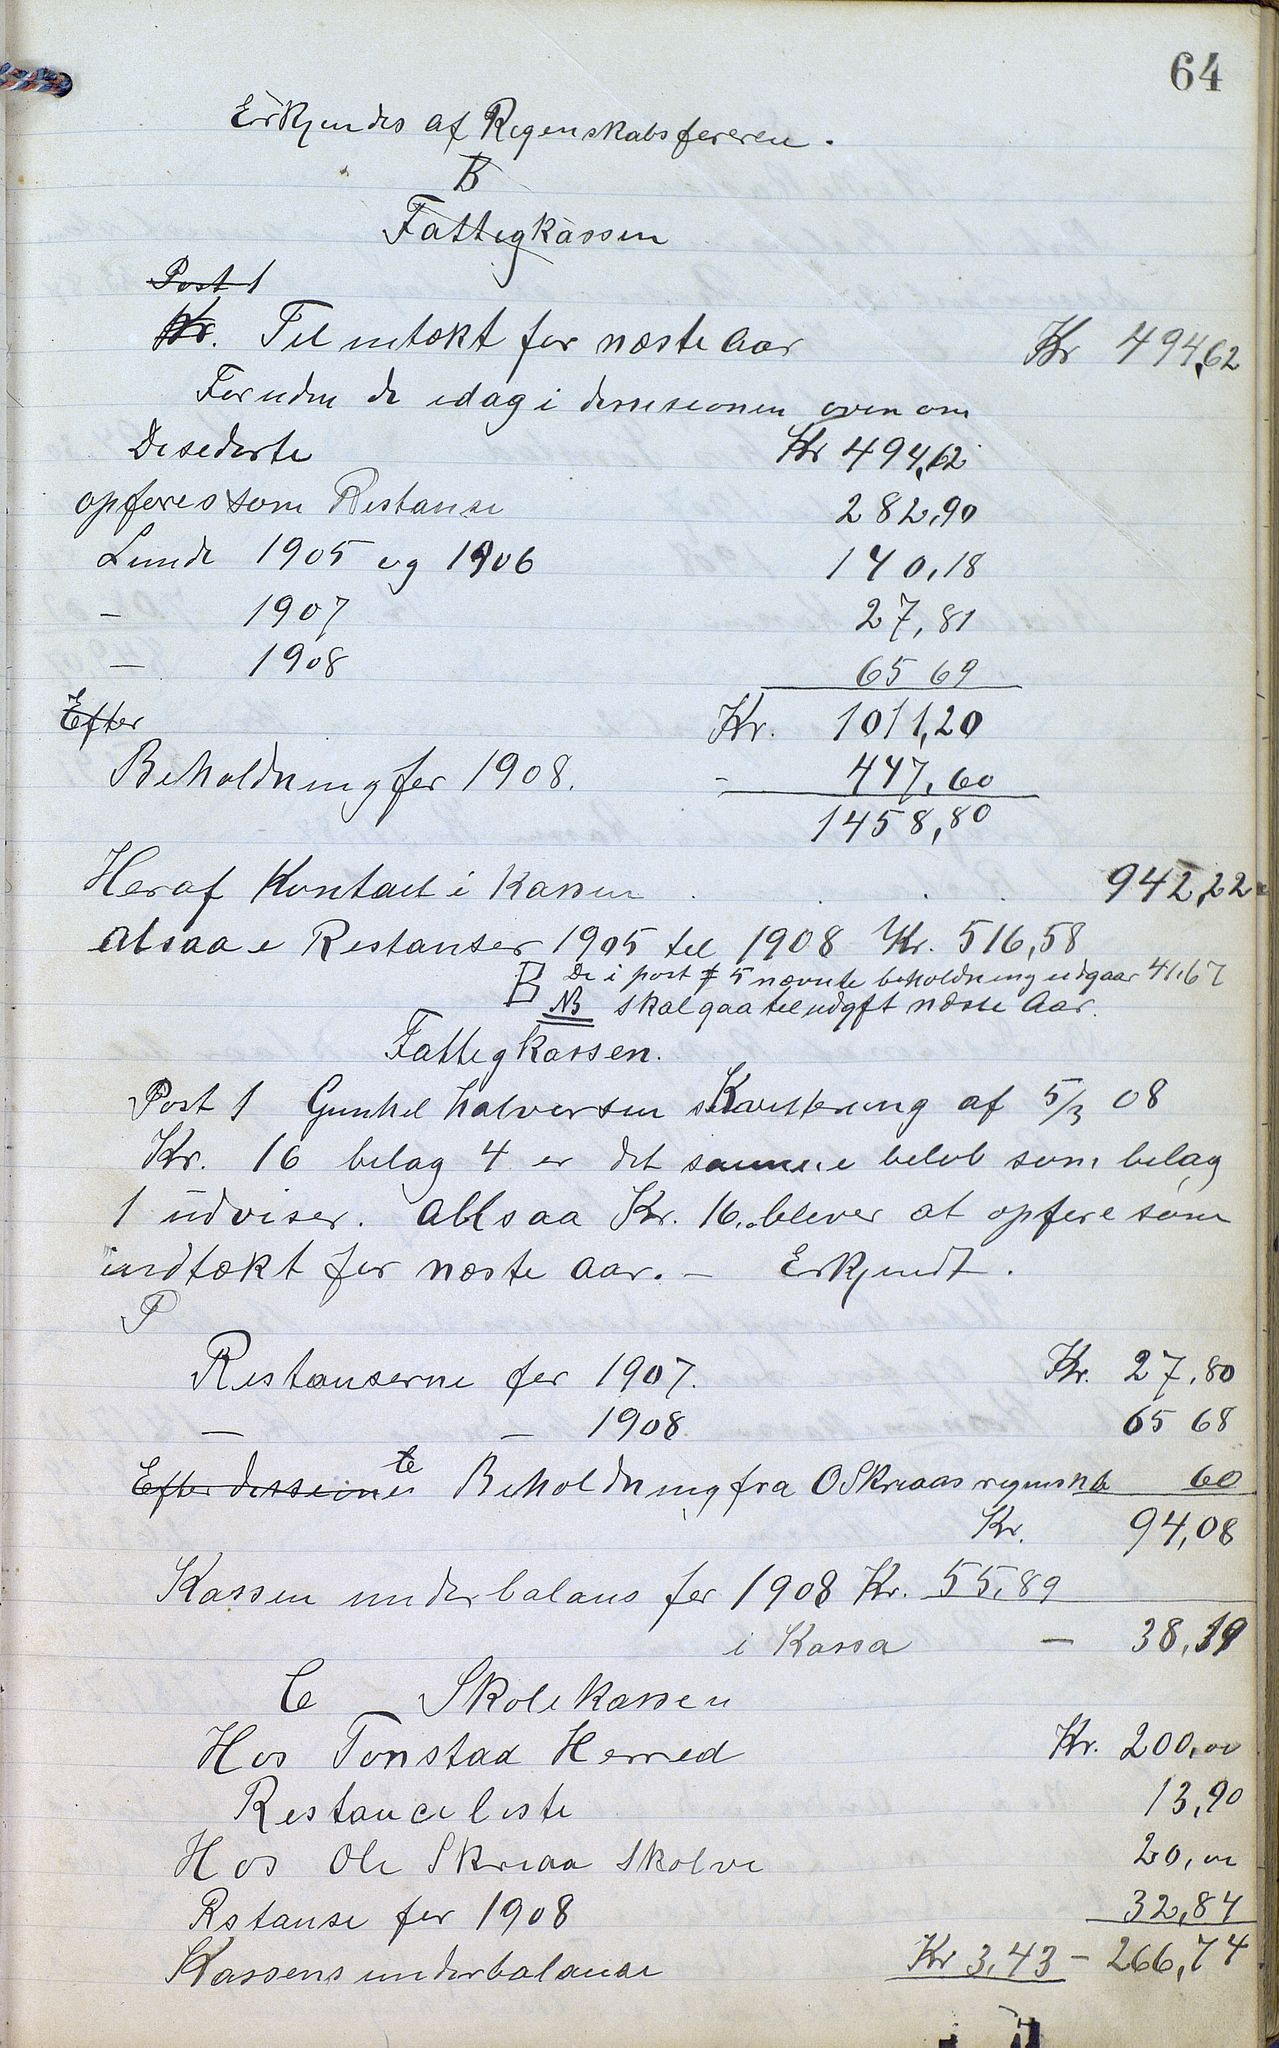 64
Erkjendes af Regenskabsføreren.
B
Fattigkassen
Post 1
Kr. Til intækt for næste Aar Kr 494,62
Foruden de idag i desisionen oven om
Desederte Kr 494,62
opføres som Restanse 282,90
Lunde 1905 og 1906 140,18
— 1907 27,81
— 1908 65 69
Efter Kr. 1011,20
Beholdning for 1908. - 447,60
1458,80
Heraf Kontant i Kassen . . . 942,22
altsaa e Restanser 1905 til 1908 Kr. 516,58
B De i post 5 nævnte beholdning udgaar 41,67
NB skal gaa til udgft næste Aar.
Fattigkassen.
Post 1 Gunhel Halversen Kvittering af 5/3 08
Kr. 16 belag 4 er det samme beløb som belag
1 udviser. altsaa Kr. 16,. blever at opføre som
indtækt for næste Aar. — Erkjendt.
P
Restanserne for 1907. Kr. 27,80
— — 1908 65 68
Efter Beholdning fra O Skreaas regnskab 60
Kr. 94,08
Kassen underbalans for 1908 Kr. 55,89
i Kassa — 38,19
C Skolekassen
Hos Tonstad Herred Kr. 200,00
Restanceliste 13,90
Hos Ole Skreaa skolve 20,00
Rstanse for 1908 32,84
Kassens underbalanse Kr 3,43 — 266,74